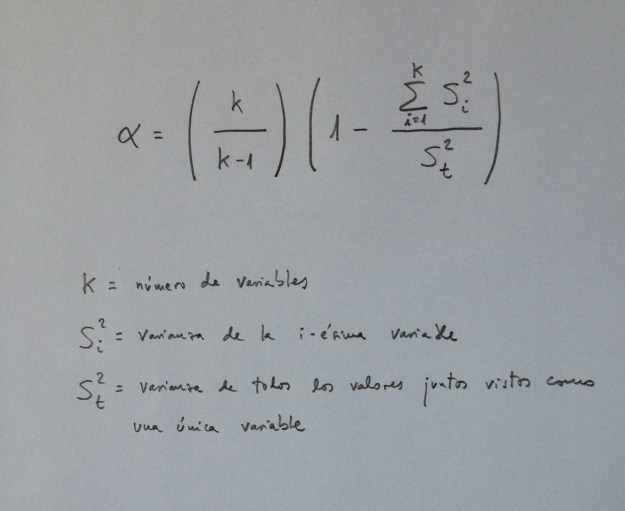 α = ( k / k-1 ) ( 1 - ∑_{i=1}^{K} S_i^2 / S_t^2 )
K = número de variables
S_i^2 = varianza de la i-ésima variable
S_t^2 = varianza de todos los valores juntos vistos como
una única variable